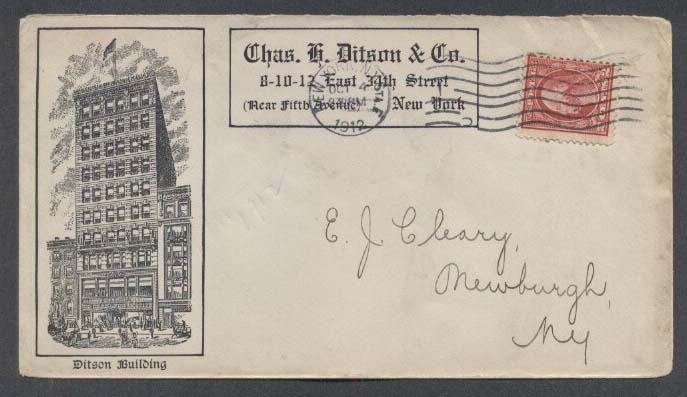 Chas. H. Ditson & Co.
8-10-12 East 34th Street
(Near Fifth Avenue) New York
NEW YORK, N.Y.
OCT 4
PM
1912
E. J. Cleary,
Newburgh,
Ny
Ditson Building